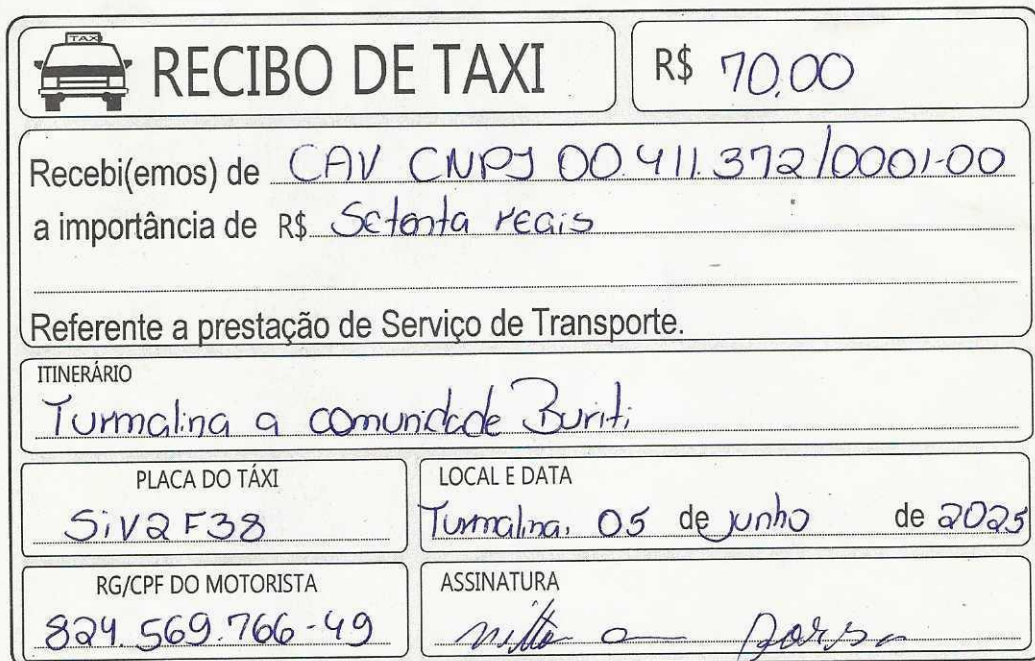 TAXI
RECIBO DE TAXI
R$ 70,00
Recebi(emos) de CAV CNPJ 00.411.372/0001-00
a importância de R$ Setenta reais
Referente a prestação de Serviço de Transporte.
ITINERÁRIO
Turmalina a comunidade Buriti
PLACA DO TÁXI
SiV2F38
LOCAL E DATA
Turmalina, 05 de junho de 2025
RG/CPF DO MOTORISTA
824.569.766-49
ASSINATURA